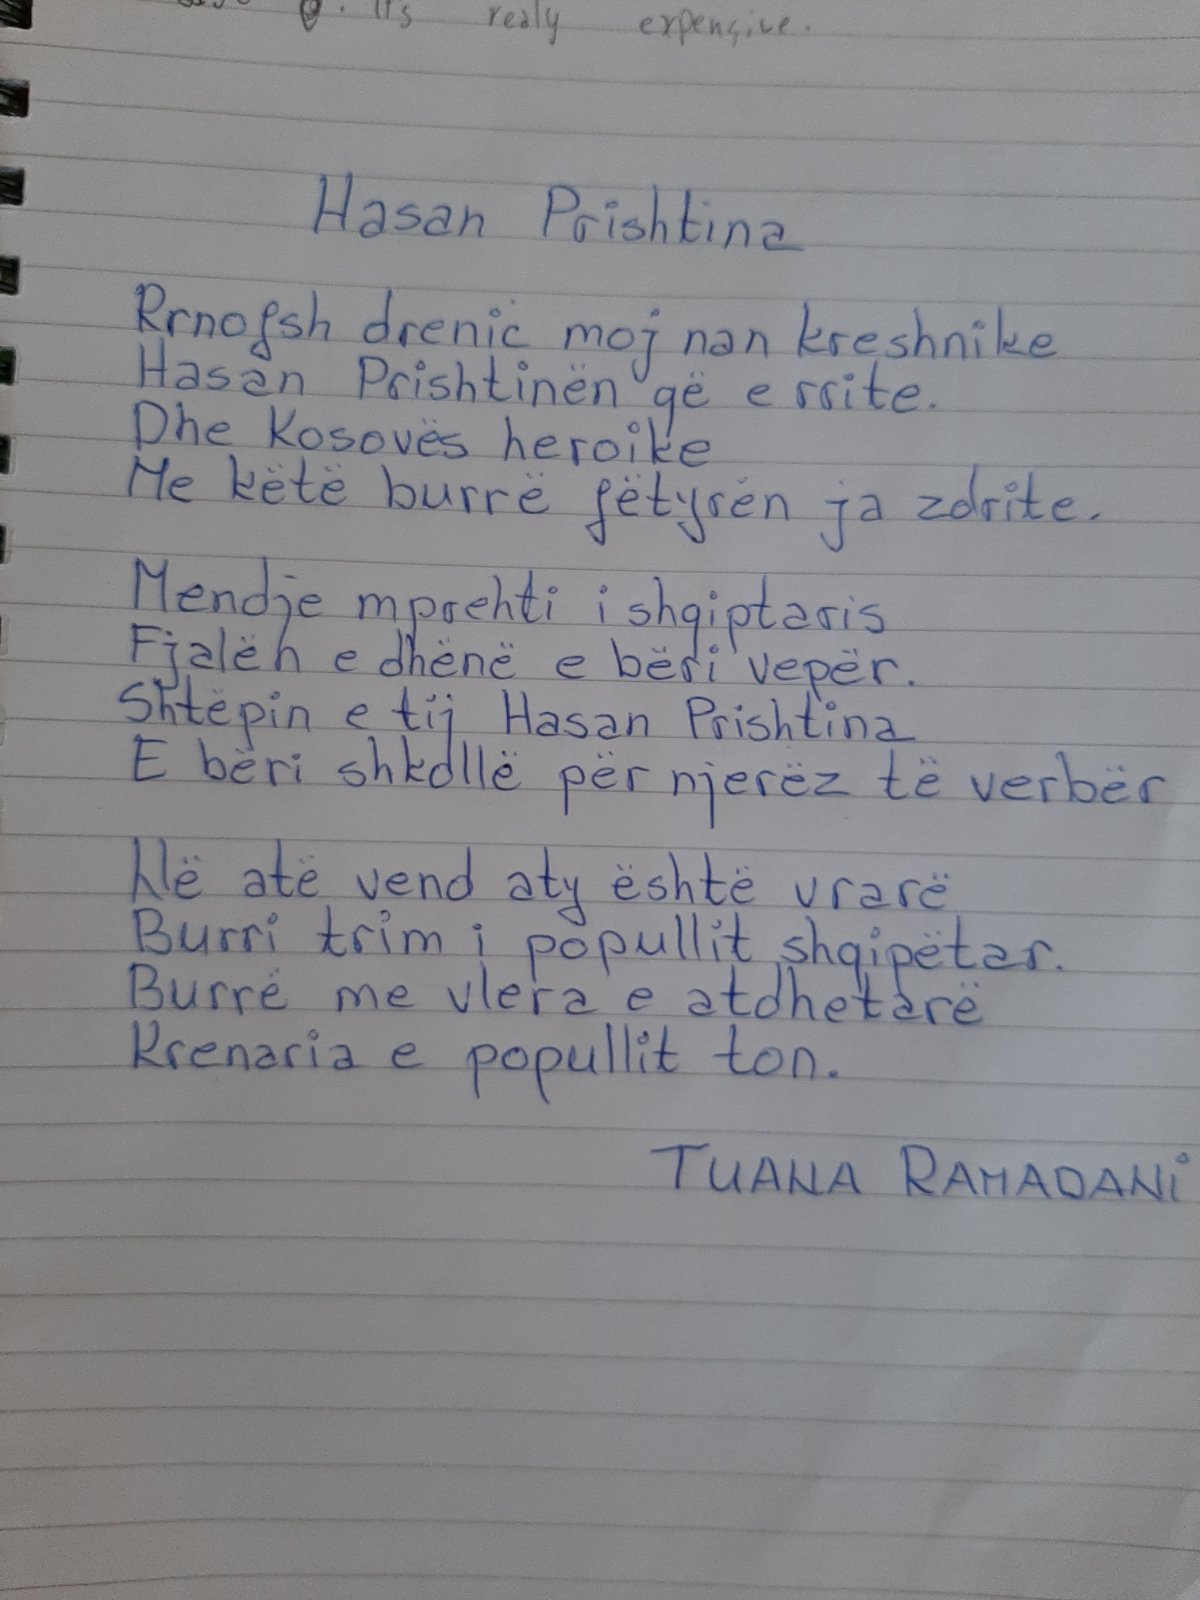 It's realy expensive.
Hasan Prishtina
Rrnofsh drenic moj nan kreshnike
Hasan Prishtinën që e rrite.
Dhe Kosovës heroike
Me këtë burrë fëtyrën ja zdrite.
Mendje mprehti i shqiptaris
Fjalën e dhënë e bëri vepër.
Shtëpin e tij Hasan Prishtina
E bëri shkollë për njerëz të verbër
Në atë vend aty është vrarë
Burri trim i popullit shqipëtar.
Burrë me vlera e atdhetarë
Krenaria e popullit ton.
TUANA RAMADANi